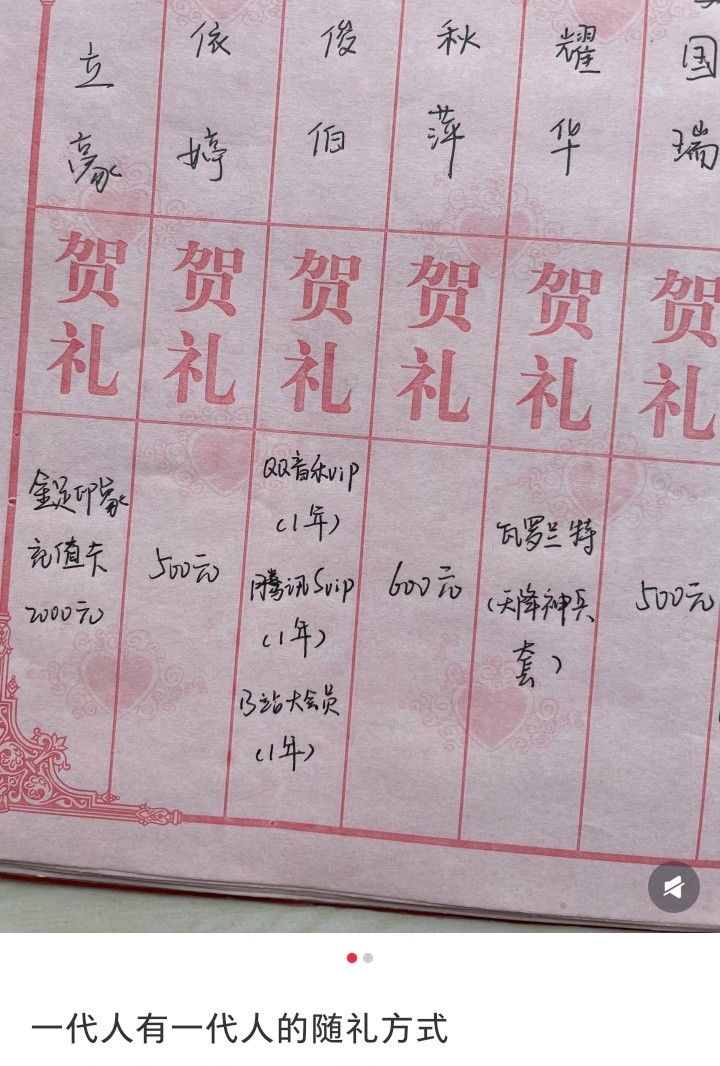 立豪
依婷
俊伯
秋萍
耀华
国瑞
贺礼
贺礼
贺礼
贺礼
贺礼
贺礼
金足印象
充值卡
2000元
500元
QQ音乐vip
(1年)
腾讯Svip
(1年)
B站大会员
(1年)
600元
瓦罗兰特
(天降神兵
套)
500元
一代人有一代人的随礼方式